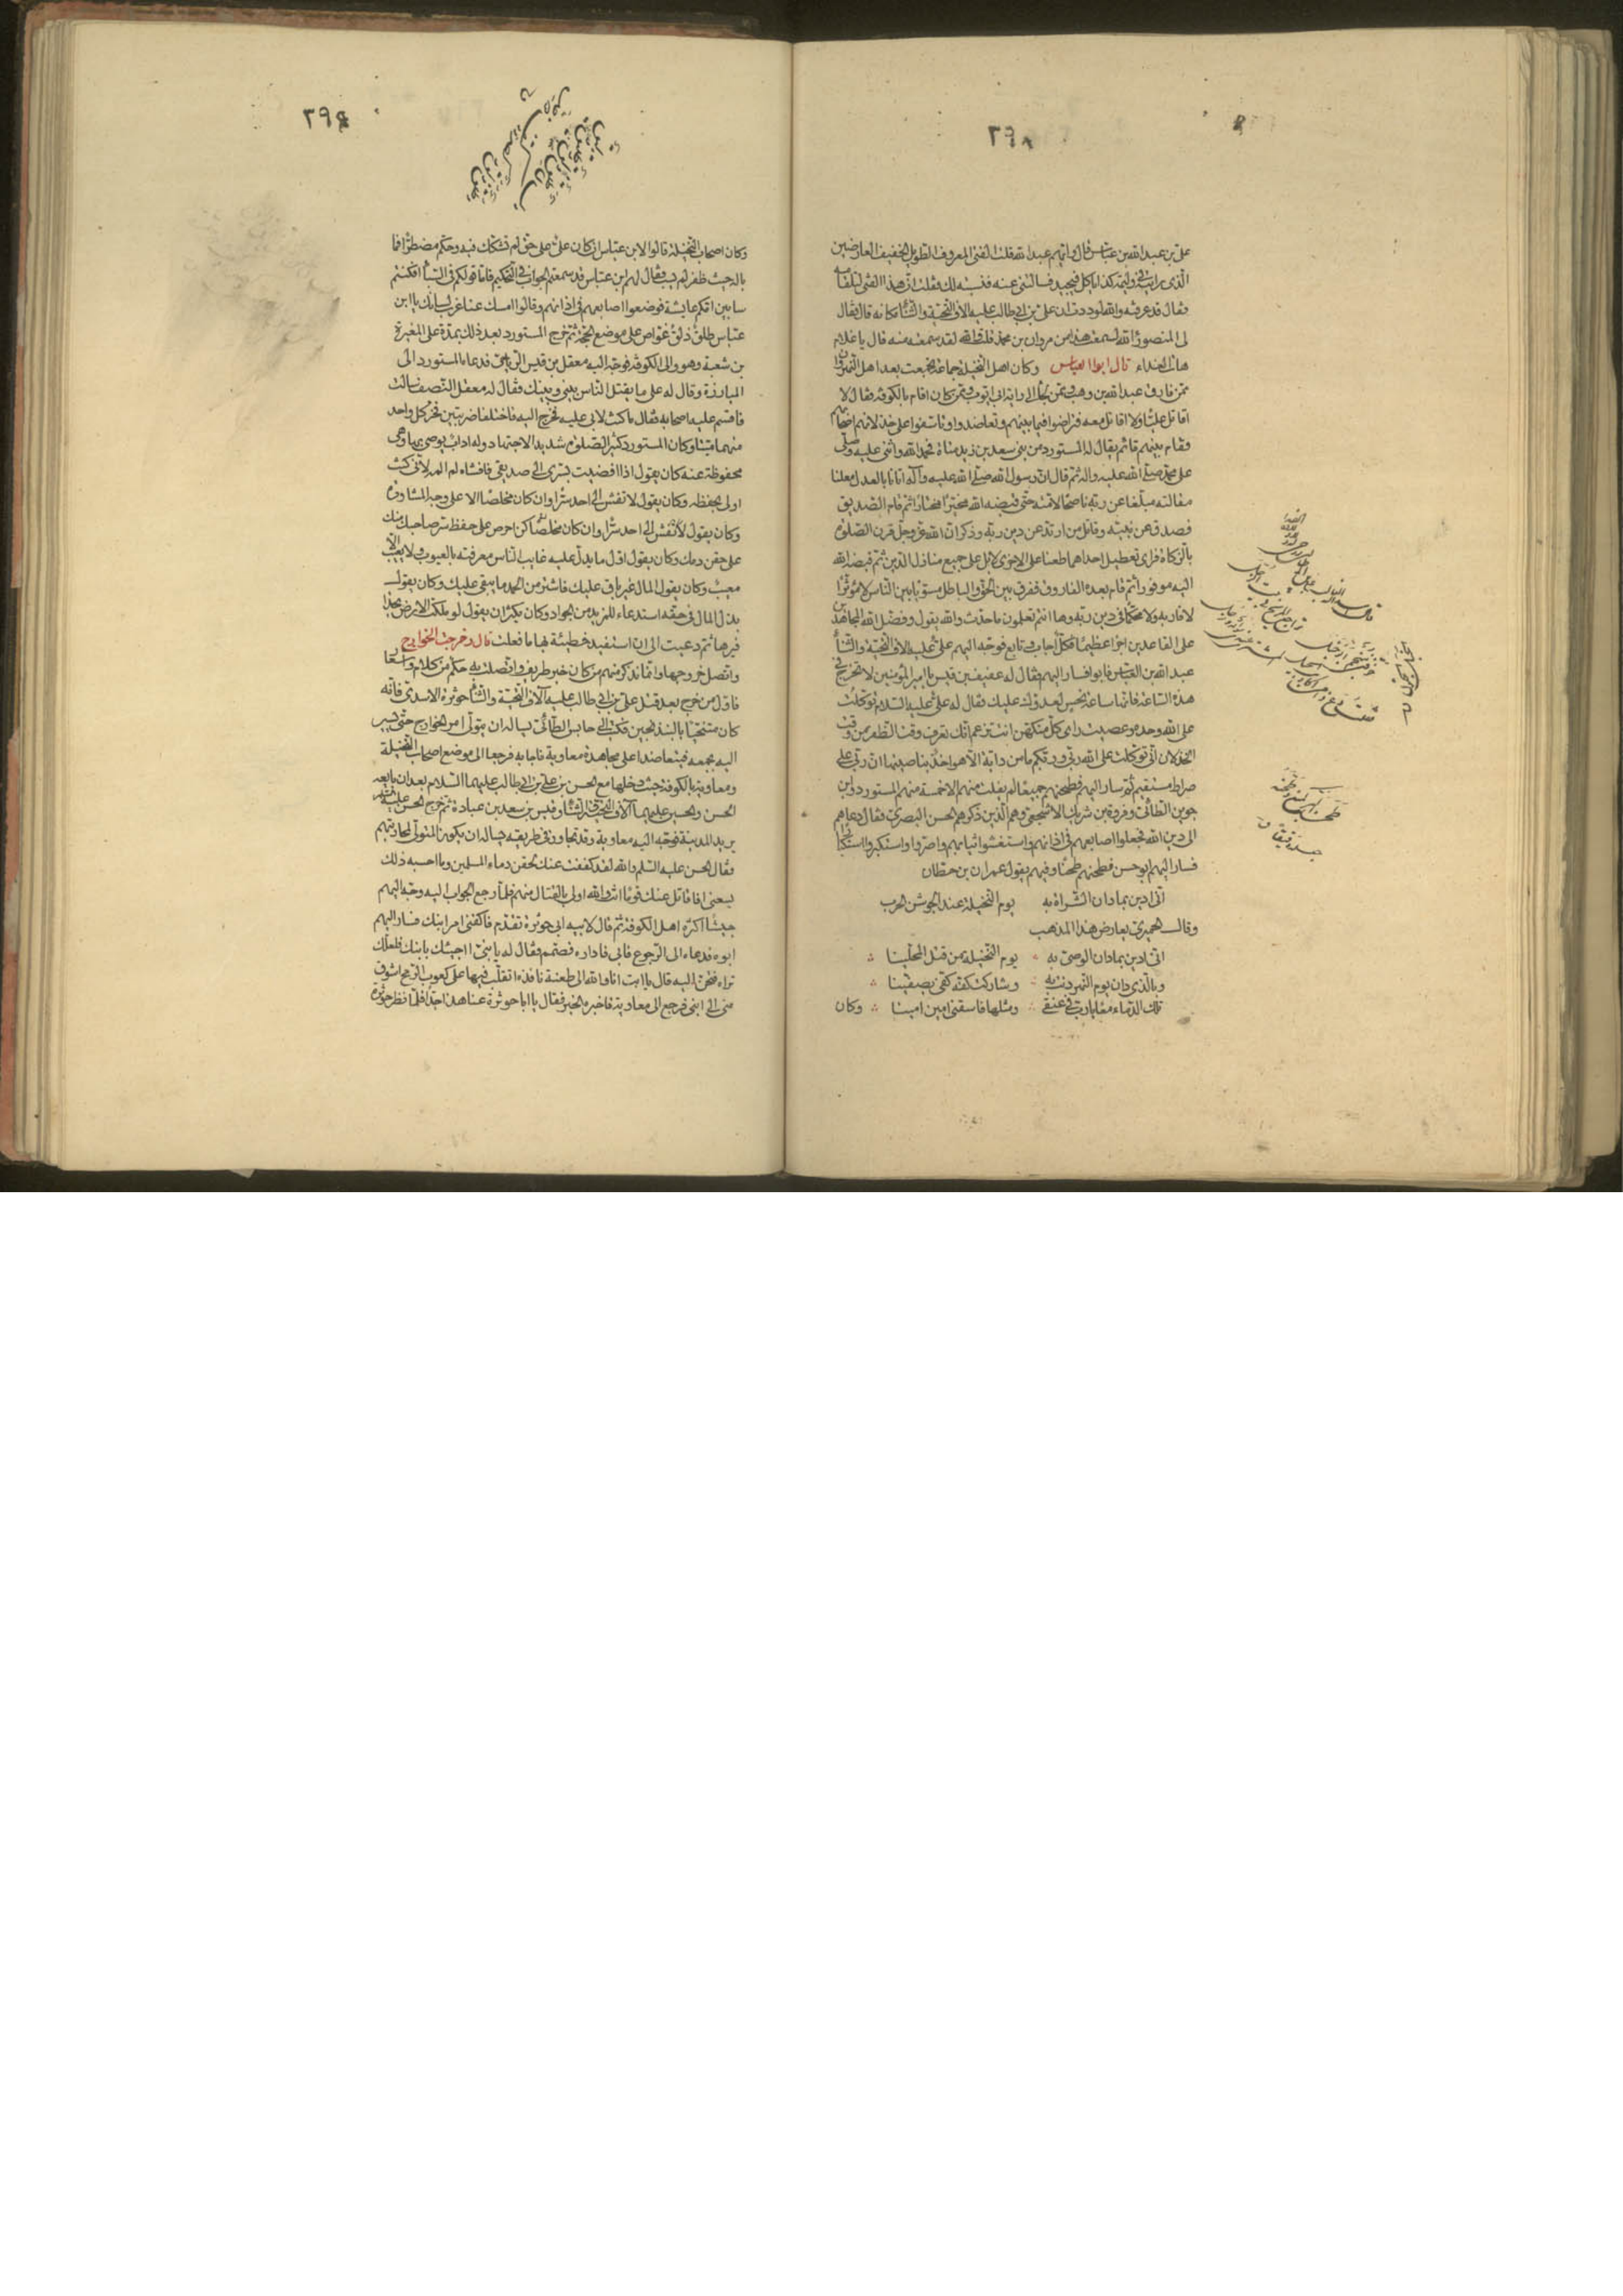 ٣٩٨
علىّ بن عبد الله بن عبّاس قال وايّهم عبد الله قلت الفتى المعروف الطويل الخفيف العارضين
الّذى رايت في وليمة كذا ياكل فيجيد فسالتنى عنه فنسبته لك فقلت انّ هذا الفتى لتلقامة
فقال قد عرفته والله لوددت ان علىّ بن ابي طالب عليه الاف التحيّة والثنأ مكانه قال فقال
لى المنصور الله لسمعت هذا من مروان بن محمد قلت والله لقد سمعته منه قال يا غلام
هات الغداء قال ابو العباس وكان اهل النخيلة جماعة تجمعت بعد اهل النهروان
ممّن فارق عبد الله بن وهب وممّن لجأ الى راية ابى ايّوب وممّن كان اقام بالكوفة فقال لا
اقاتل عليّا ولا اقاتل معه فتراضوا فيما بينهم وتعاضدوا وتاسّفوا على خذلانهم اصحابهم
فقام بينهم قائم يقال له المستورد من بنى سعد بن زيد مناة فحمد الله واثنى عليه وصلّى
على محمّد صلّى الله عليه واله ثم قال انّ رسول الله صلّى الله عليه وآله اتانا بالعدل معلنا
مقالته مبلّغا عن ربّه ناصحا لامّته حتّى قبضه الله مخيّرا مختارا ثم قام الصديق
فصدق عن نبيّه وقاتل من ارتدّ عن دين ربّه وذكر انّ الله عزّ وجلّ قرن الصلوة
بالزكاة فراى تعطيل احداهما طعنا على الاخرى لا بل على جميع منازل الدين ثم قبضه الله
اليه موفورا ثم قام بعده الفاروق ففرق بين الحقّ والباطل مسوّيا بين الناس لا مؤثرا
لاقاربه ولا محكّما في دين ربّه وها انتم تعلمون ما حدث والله يقول وفضل الله المجاهدين
على القاعدين اجرا عظيما فكلّ اجاب وتابع فوجّه اليهم علىّ عليه الاف التحيّة والثنأ
عبد الله بن العبّاس فابوا فسار اليهم فقال له عفيف بن قيس يا امير المؤمنين لا تخرج في
هذه الساعة فانّها ساعة نحس لعدوّك عليك فقال له علىّ عليه السلام توكّلت
على الله وحده وعصيت راى كلّ متكهّن انت تزعم انّك تعرف وقت الظفر من وقت
الخذلان انّى توكّلت على الله ربّى وربّكم ما من دابة الّا هو اخذ بناصيتها انّ ربّى على
صراط مستقيم ثم سار اليهم فطحنهم جميعا لم يفلت منهم الا خمسة منهم المستورد وابن
جوين الطائى وفروة بن شريك الاشجعى وهم الّذين ذكرهم الحسن البصرى فقال دعاهم
الى دين الله فجعلوا اصابعهم في اذانهم واستغشوا ثيابهم واصرّوا واستكبروا استكبارا
فسار اليهم ابو حسن فطحنهم طحنا وفيهم يقول عمران بن حطّان
انّى ادين بما دان الشراة به يوم النخيلة عند الجوسق الخرب
وقال الحميرى يعارض هذا المذهب
انّى ادين بما دان الوصىّ به يوم النخيلة من قتل المحلّينا
وبالّذى دان يوم النهر دنت به وشاركت كفّه كفّى بصفّينا
تلك الدماء معا يا ربّ في عنقى ومثلها فاسقنى امين امينا وكان
٣٩٩
وكان اصحاب النخيلة قالوا لابن عبّاس ان كان علىّ على حقّ لم يشكك فيه وحكّم مضطرّا فما
باله حيث ظفر لم يسب فقال لهم ابن عبّاس قد سمعتم الجواب في التحكيم فامّا قولكم في السبأ افكنتم
سابين امّكم عايشة فوضعوا اصابعهم في اذانهم وقالوا امسك عنا غرب لسانك يا ابن
عبّاس طلق ذلق غوّاص على موضع الحجّة ثم خرج المستورد بعد ذلك بمدّة على المغيرة
بن شعبة وهو والى الكوفة فوجّه اليه معقل بن قيس الرياحى فدعاه المستورد الى
المبارزة وقال له على ما يقتل الناس بينى وبينك فقال له معقل النصف سالت
فاقسم عليه اصحابه فقال ما كنت لابى عليه فخرج اليه فاختلفا ضربتين فخرّ كلّ واحد
منهما ميّتا وكان المستورد كثير الصلوة شديد الاجتهاد وله اداب يوصى بها وهى
محفوظة عنه كان يقول اذا افضيت بسرّى الى صديقى فافشاه لم المه لانّى كنت
اولى بحفظه وكان يقول لا تفش الى احد سرّا وان كان مخلصا الا على وجه المشاورة
وكان يقول لا تفش الى احد سرّا وان كان مخلصا كن احرص على حفظ سرّ صاحبك منك
على حقن دمك وكان يقول اوّل ما يدلّ عليه عايب الناس معرفته بالعيوب ولا يعيب الّا
معيب وكان يقول المال غير باق عليك فاشتر من الحمد ما يبقى عليك وكان يقول
بذل المال في حقّه استدعاء للمزيد من الجواد وكان يكثر ان يقول لو ملكت الارض بحذا
فيرها ثم دعيت الى ان استفيد خطيئة بها ما فعلت قال وخرجت الخوارج
واتّصل خروجها وانّما نذكر منهم من كان ذا خبر طريف واتّصلت به حكم من كلام واشعار
فاوّل من خرج بعد قتل علىّ بن ابي طالب عليه آلاف التحيّة والثنأ حوثرة الاسدى فانّه
كان متنحّيا بالبندنيجين فكتب الى حابس الطائىّ يساله ان يتولّى امر الخوارج حتّى يسير
اليه بجمعه فيتعاضدا على مجاهدة معاوية فاجابه فرجعا الى موضع اصحاب النخيلة
ومعاوية بالكوفة حيث دخلها مع الحسن بن علىّ بن ابي طالب عليهما السلام بعد ان بايعه
الحسن والحسين عليهما آلاف التحيّة والثنأ وقيس بن سعد بن عبادة ثم خرج الحسن عليه السلام
يريد المدينة فوجّه اليه معاوية وقد تجاوز في طريقه يساله ان يكون المتولّى لمحاربتهم
فقال الحسن عليه السلم والله لقد كففت عنك لحقن دماء المسلمين وما احسب ذلك
يسعنى افاقاتل عنك قوما انت والله اولى بالقتال منهم فلمّا رجع الجواب اليه وجّه اليهم
جيشا اكثره اهل الكوفة ثم قال لابيه ابى حوثرة تقدّم فاكفنى امر ابنك فسار اليهم
ابوه فدعاه الى الرجوع فابى فاداره فصمّم فقال له يا بنىّ اجيئك بابنك فلعلّك
تراه فتحنّ اليه قال يا ابت انا والله الى طعنة نافذة اتقلّب فيها على كعوب الرمح اشوق
منى الى ابنى فرجع الى معاوية فاخبره الخبر فقال يا ابا حوثرة عتا هذا جدّا فلمّا نظر حوثرة